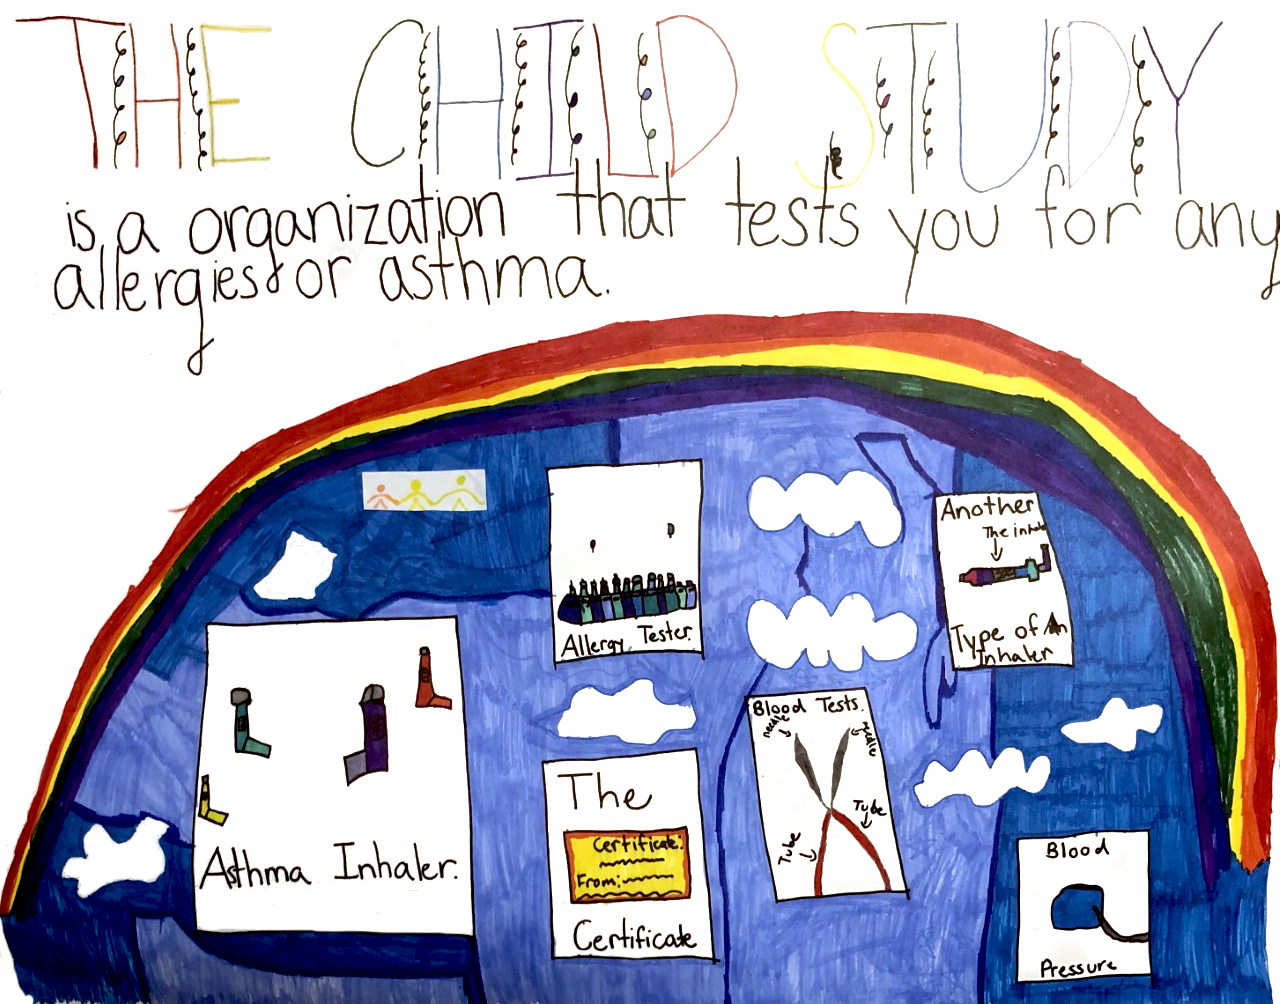 THE CHILD STUDY
is a organization that tests you for any
allergies or asthma.
Allergy Tester.
Another
The inhale
Type of An
Inhaler
Blood Tests.
needle
needle
Tube
Tube
Asthma Inhaler.
The
Certificate:
From:
Certificate
Blood
Pressure